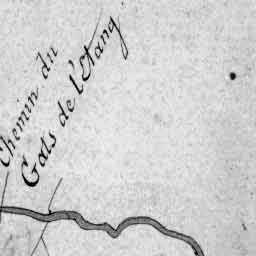 Chemin du
Gals de l'Etang